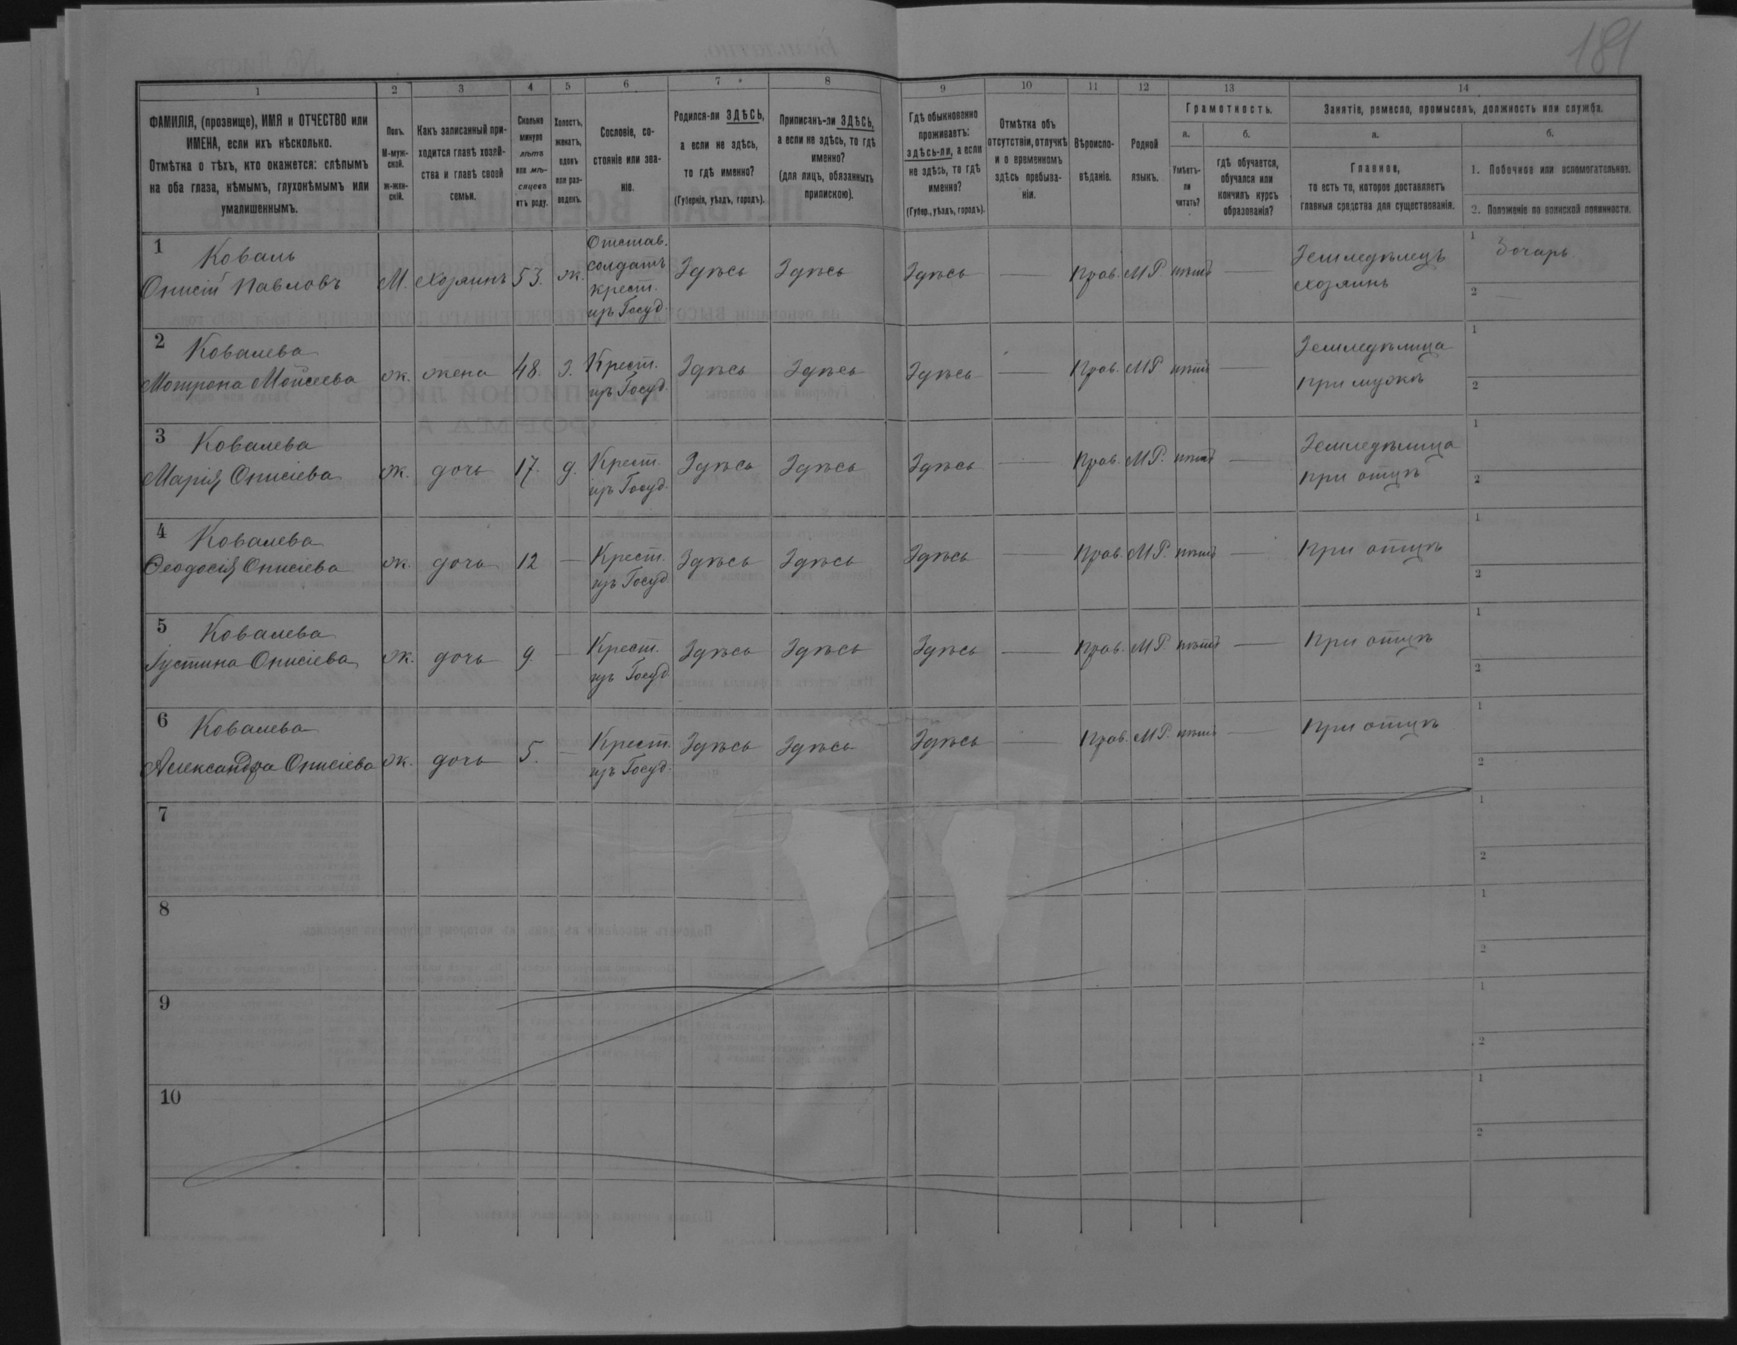 181
1 2 3 4 5 6 7 8 9 10 11 12 13 14
ФАМИЛІЯ, (прозвище), ИМЯ и ОТЧЕСТВО или
ИМЕНА, если ихъ нѣсколько.
Отмѣтка о тѣхъ, кто окажется: слѣпымъ
на оба глаза, нѣмымъ, глухонѣмымъ или
умалишеннымъ.
Полъ.
М-муж-
ской.
ж-жен-
скій.
Какъ записанный при-
ходится главѣ хозяй-
ства и главѣ своей
семьи.
Сколько
минуло
лѣтъ
или мѣ-
сяцевъ
отъ роду.
Холостъ,
женатъ,
вдовъ
или раз-
веденъ.
Сословіе, со-
стояніе или зва-
ніе.
Родился-ли ЗДѢСЬ,
а если не здѣсь,
то гдѣ именно?
(Губернія, уѣздъ, городъ).
Приписанъ-ли ЗДѢСЬ,
а если не здѣсь, то гдѣ
именно?
(для лицъ, обязанныхъ
припискою).
Гдѣ обыкновенно
проживаетъ:
здѣсь-ли, а если
не здѣсь, то гдѣ
именно?
(Губер., уѣздъ, городъ).
Отмѣтка объ
отсутствіи, отлучкѣ
и о временномъ
здѣсь пребыва-
ніи.
Вѣроиспо-
вѣданіе.
Родной
языкъ.
Грамотность.
а.
Умѣетъ-
ли
читать?
б.
гдѣ обучается,
обучался или
кончилъ курсъ
образованія?
Занятіе, ремесло, промыселъ, должность или служба.
а.
Главное,
то есть то, которое доставляетъ
главныя средства для существованія.
б.
1. Побочное или вспомогательное.
2. Положеніе по воинской повинности.
1 Коваль
Онисій Павловъ М. Хозяинъ 53. ж.
Отстав.
солдатъ
крест.
изъ Госуд.
Здѣсь Здѣсь Здѣсь — Прав. МР нѣтъ —
Земледѣлецъ
хозяинъ
1 Бочарь
2 —
2 Ковалева
Мотрона Мойсеева ж. жена 48. з.
Крест.
изъ Госуд.
Здѣсь Здѣсь Здѣсь — Прав. МР нѣтъ —
Земледѣлица
при мужѣ
1
2
3 Ковалева
Марія Онисіева ж. дочь 17. д.
Крест.
изъ Госуд.
Здѣсь Здѣсь Здѣсь — Прав. МР. нѣтъ —
Земледѣлица
при отцѣ
1
2
4 Ковалева
Феодосія Онисіева ж. дочь 12 —
Крест.
изъ Госуд.
Здѣсь Здѣсь Здѣсь — Прав. МР. нѣтъ —
При отцѣ
1
2
5 Ковалева
Іустина Онисіева ж. дочь 9 —
Крест.
изъ Госуд
Здѣсь Здѣсь Здѣсь — Прав. МР нѣтъ —
При отцѣ
1
2
6 Ковалева
Александра Онисіева ж. дочь 5. —
Крест.
изъ Госуд.
Здѣсь Здѣсь Здѣсь — Прав. МР. нѣтъ —
При отцѣ
1
2
7
1
2
8
1
2
9
1
2
10
1
2